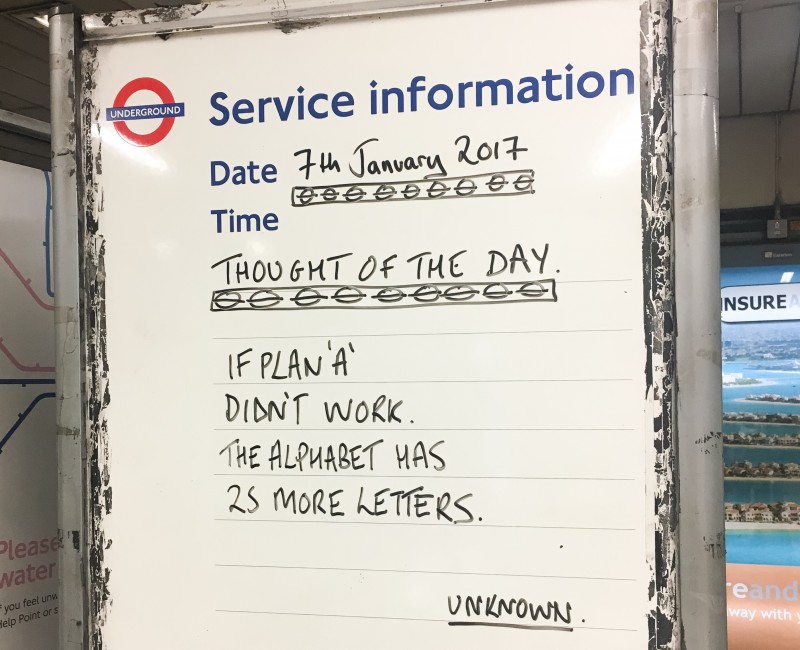 UNDERGROUND
Service information
Date 7th January 2017
Time
THOUGHT OF THE DAY.
IF PLAN 'A'
DIDN'T WORK.
THE ALPHABET HAS
25 MORE LETTERS.
UNKNOWN.
Please
water
f you feel unw
Help Point or s
INSURE
reand
way with